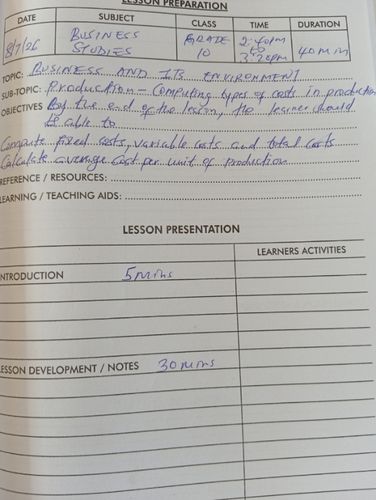 LESSON PREPARATION
DATE SUBJECT CLASS TIME DURATION
8/7/26 BUSINESS STUDIES GRADE 10 2:40pm to 3:20pm 40 MIN
TOPIC: BUSINESS AND ITS ENVIRONMENT
SUB-TOPIC: Production - Computing types of costs in production
OBJECTIVES By the end of the lesson, the learner should
be able to
Compute fixed costs, variable costs and total costs
Calculate average cost per unit of production
REFERENCE / RESOURCES:
LEARNING / TEACHING AIDS:
LESSON PRESENTATION
LEARNERS ACTIVITIES
INTRODUCTION 5 mins
LESSON DEVELOPMENT / NOTES 30 mins